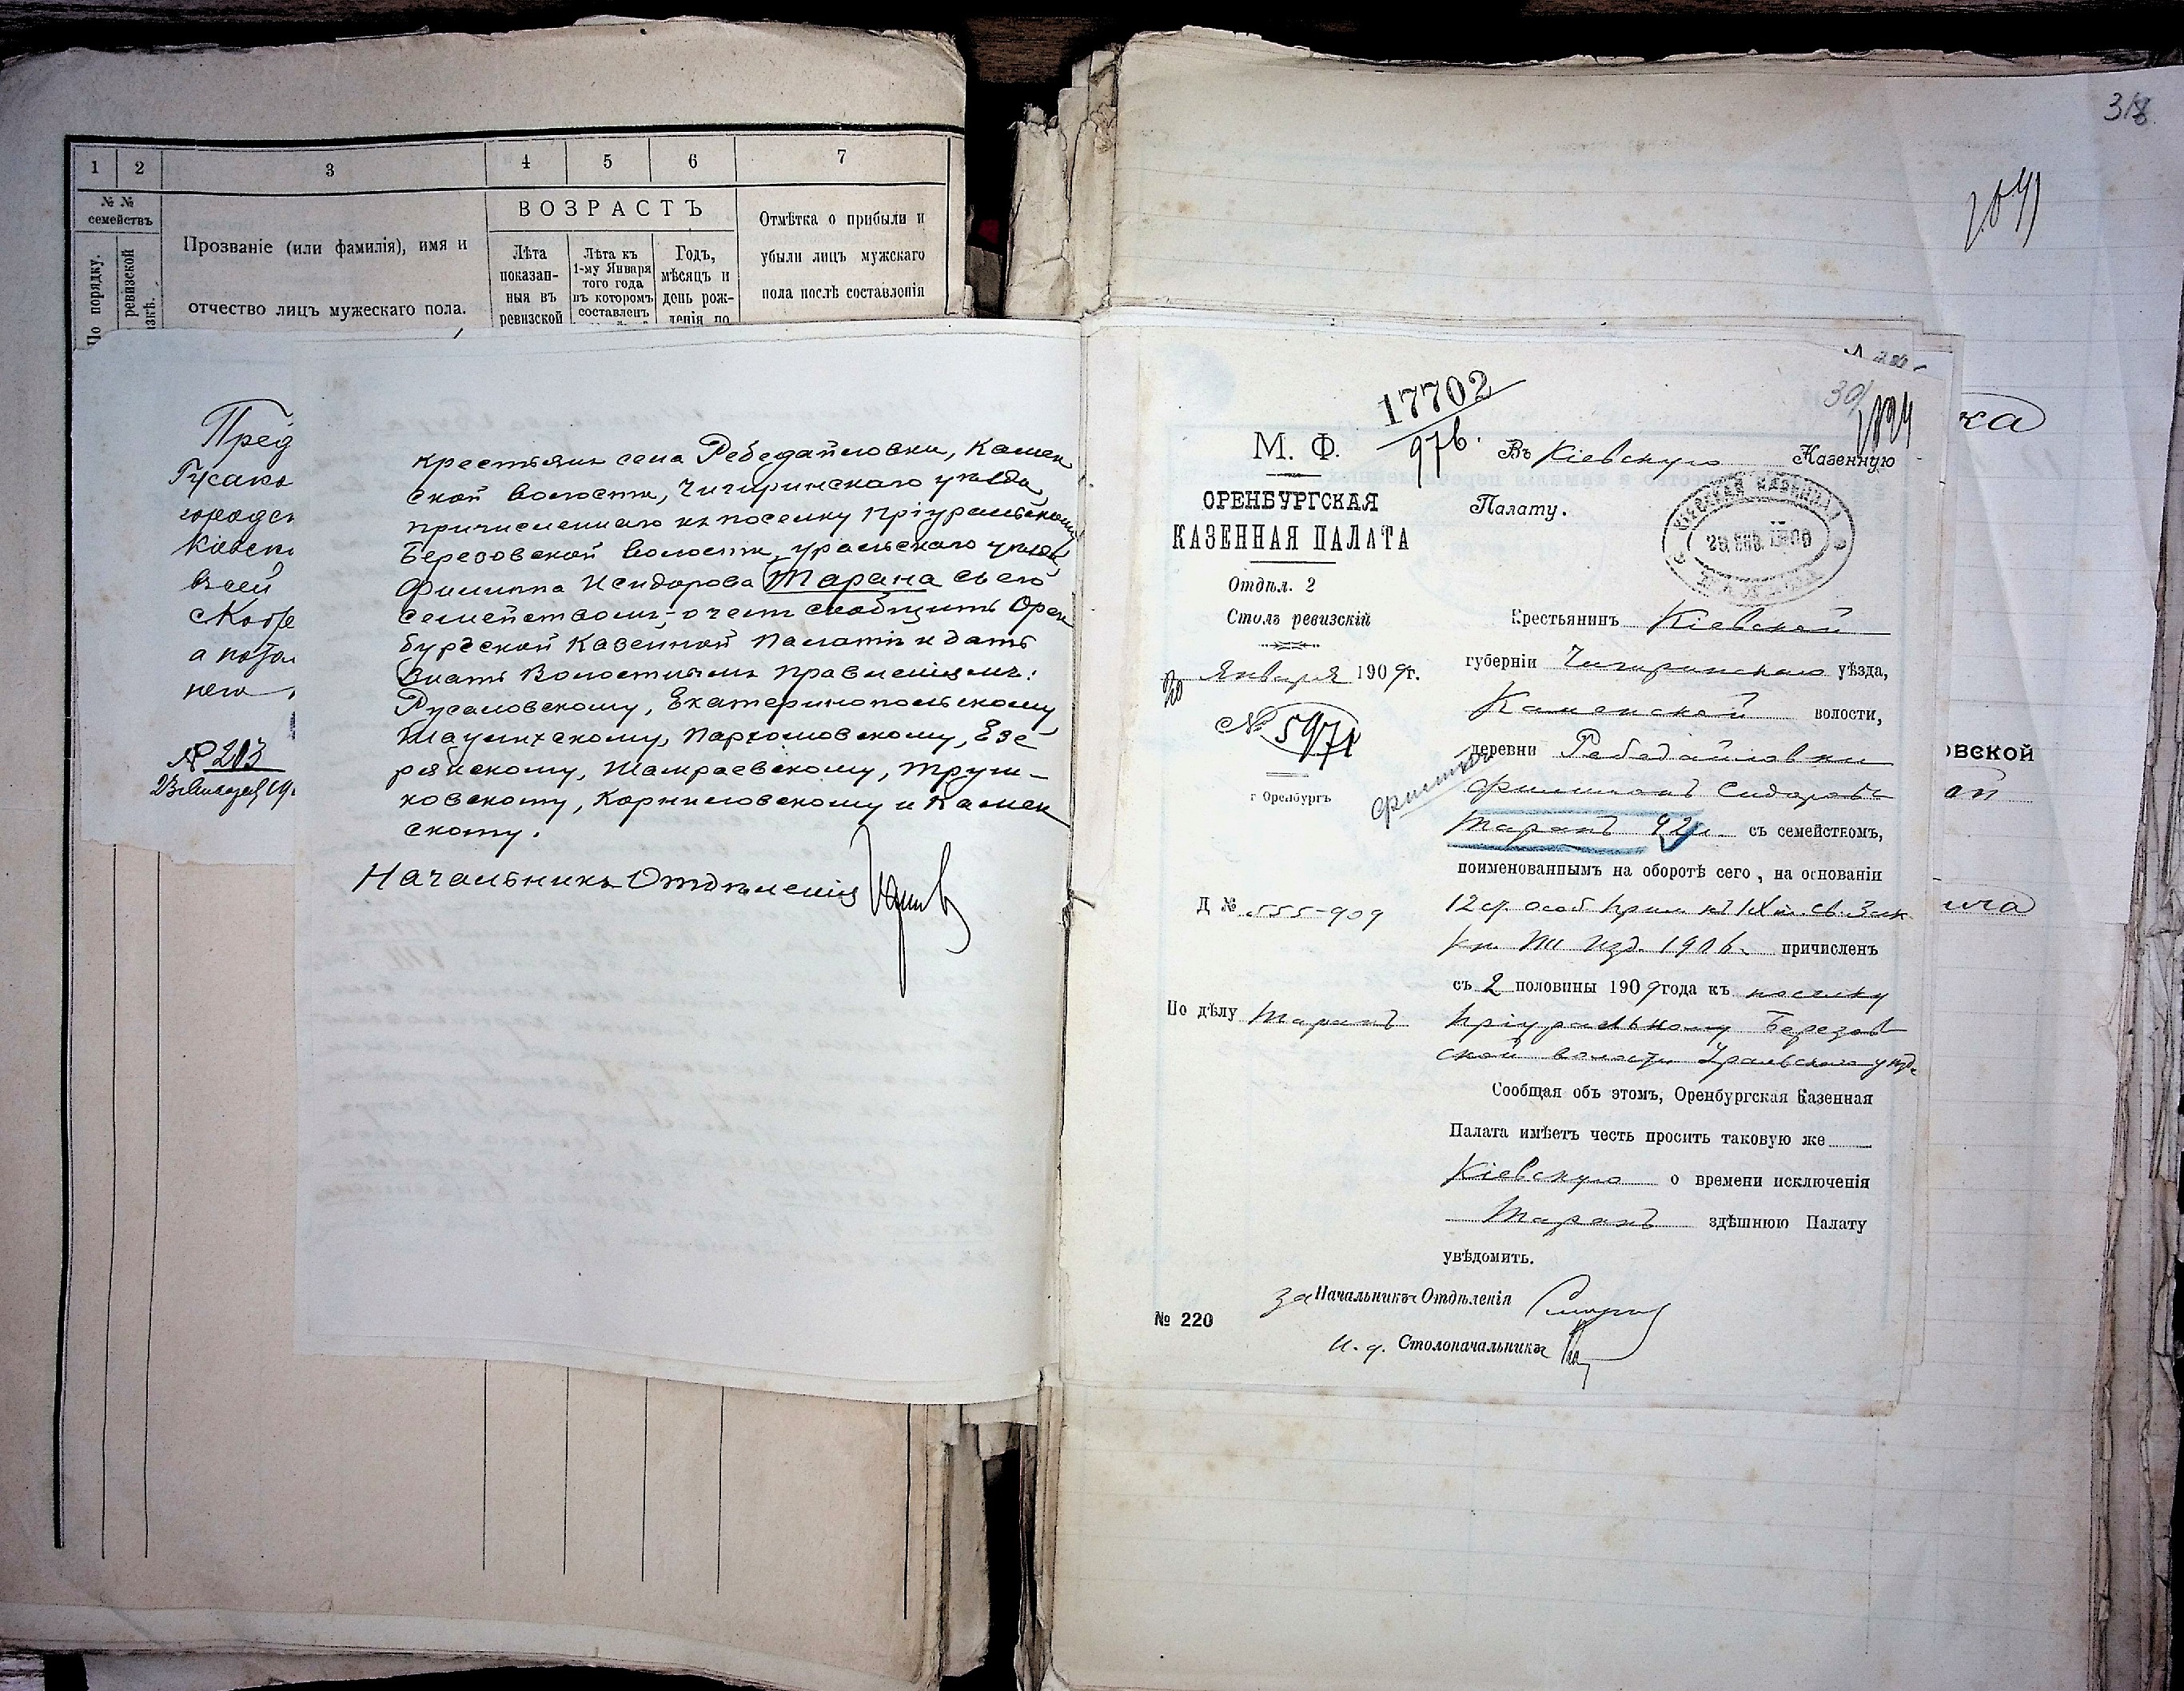 1 2 3 4 5 6 7
№ №
семействъ
По порядку.
ревизской
Прозваніе (или фамилія), имя и
отчество лицъ мужескаго пола.
ВОЗРАСТЪ
Лѣта
показан-
ныя въ
ревизской
Лѣта къ
1-му Января
того года
въ которомъ
составленъ
Годъ,
мѣсяцъ и
день рож-
денія по
Отмѣтка о прибыли и
убыли лицъ мужскаго
пола послѣ составленія
Пред
Гусако
городск
Кіевск
всей
а пота
него
№ 213
крестьянъ села Ребедайловки, Камен
ской волости, Чигиринскаго уѣзда,
причисленнаго къ поселку Пріуральскому
Березовской волости, Уральскаго уѣзда
Филиппа Исидорова Тарана съ его
семействомъ, о чемъ сообщить Орен
бургской Казенной Палатѣ и дать
знать Волостнымъ Правленіямъ:
Русаловскому, Екатеринопольскому
Шаулихскому, Пархомовскому, Езе
рянскому, Шамраевскому, Труш-
ковскому, Корниловскому и Камен
скому.
Начальникъ Отдѣленія
318
17702
976.
М. Ф.
ОРЕНБУРГСКАЯ
КАЗЕННАЯ ПАЛАТА
Отдѣл. 2
Столъ ревизскій
20 Января 1909г.
№ 5971
г Оренбургъ
Д № 555-909
По дѣлу Таранъ
№ 220
Въ Кіевскую Казенную
Палату.
Крестьянинъ Кіевской
губерніи Чигиринскаго уѣзда,
Каменской волости,
деревни Ребедайловки
Филиппъ
Филиппъ Сидоровъ
Таранъ 42л. съ семействомъ,
поименованнымъ на оборотѣ сего, на основаніи
12 ст. особ. прил. къ IX т. св. Зак.
кн. VIII изд. 1906. причисленъ
съ 2 половины 1909 года къ поселку
Пріуральному Березов
ской волости Уральскаго уѣзд.
Сообщая объ этомъ, Оренбургская Казенная
Палата имѣетъ честь просить таковую же
Кіевскую о времени исключенія
Таранъ здѣшнюю Палату
увѣдомить.
за Начальникъ Отдѣленія
И. д. Столоначальникъ
ка
овской